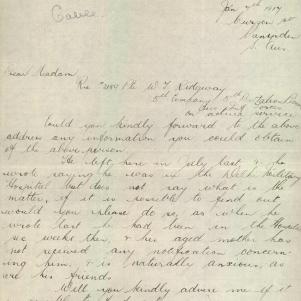 Cable
Jan 7th 1917
Curzon St
Camden
S. Aus.
Dear Madam
Re Pte W. J. Ridgway
8th Company 5th Pioneers
on active service
Could you kindly forward to the above
address any information you could obtain
of the above person
He left here in July last, & he
wrote saying he was in the Military
Hospital but does not say what is the
matter, if it is possible to find out
would you please do so, as when he
wrote last he had been in the Hospital
weeks then, & his aged mother has
not received any notification concern
ing him, & is naturally anxious, as
are his friends
Will you kindly advise me if it